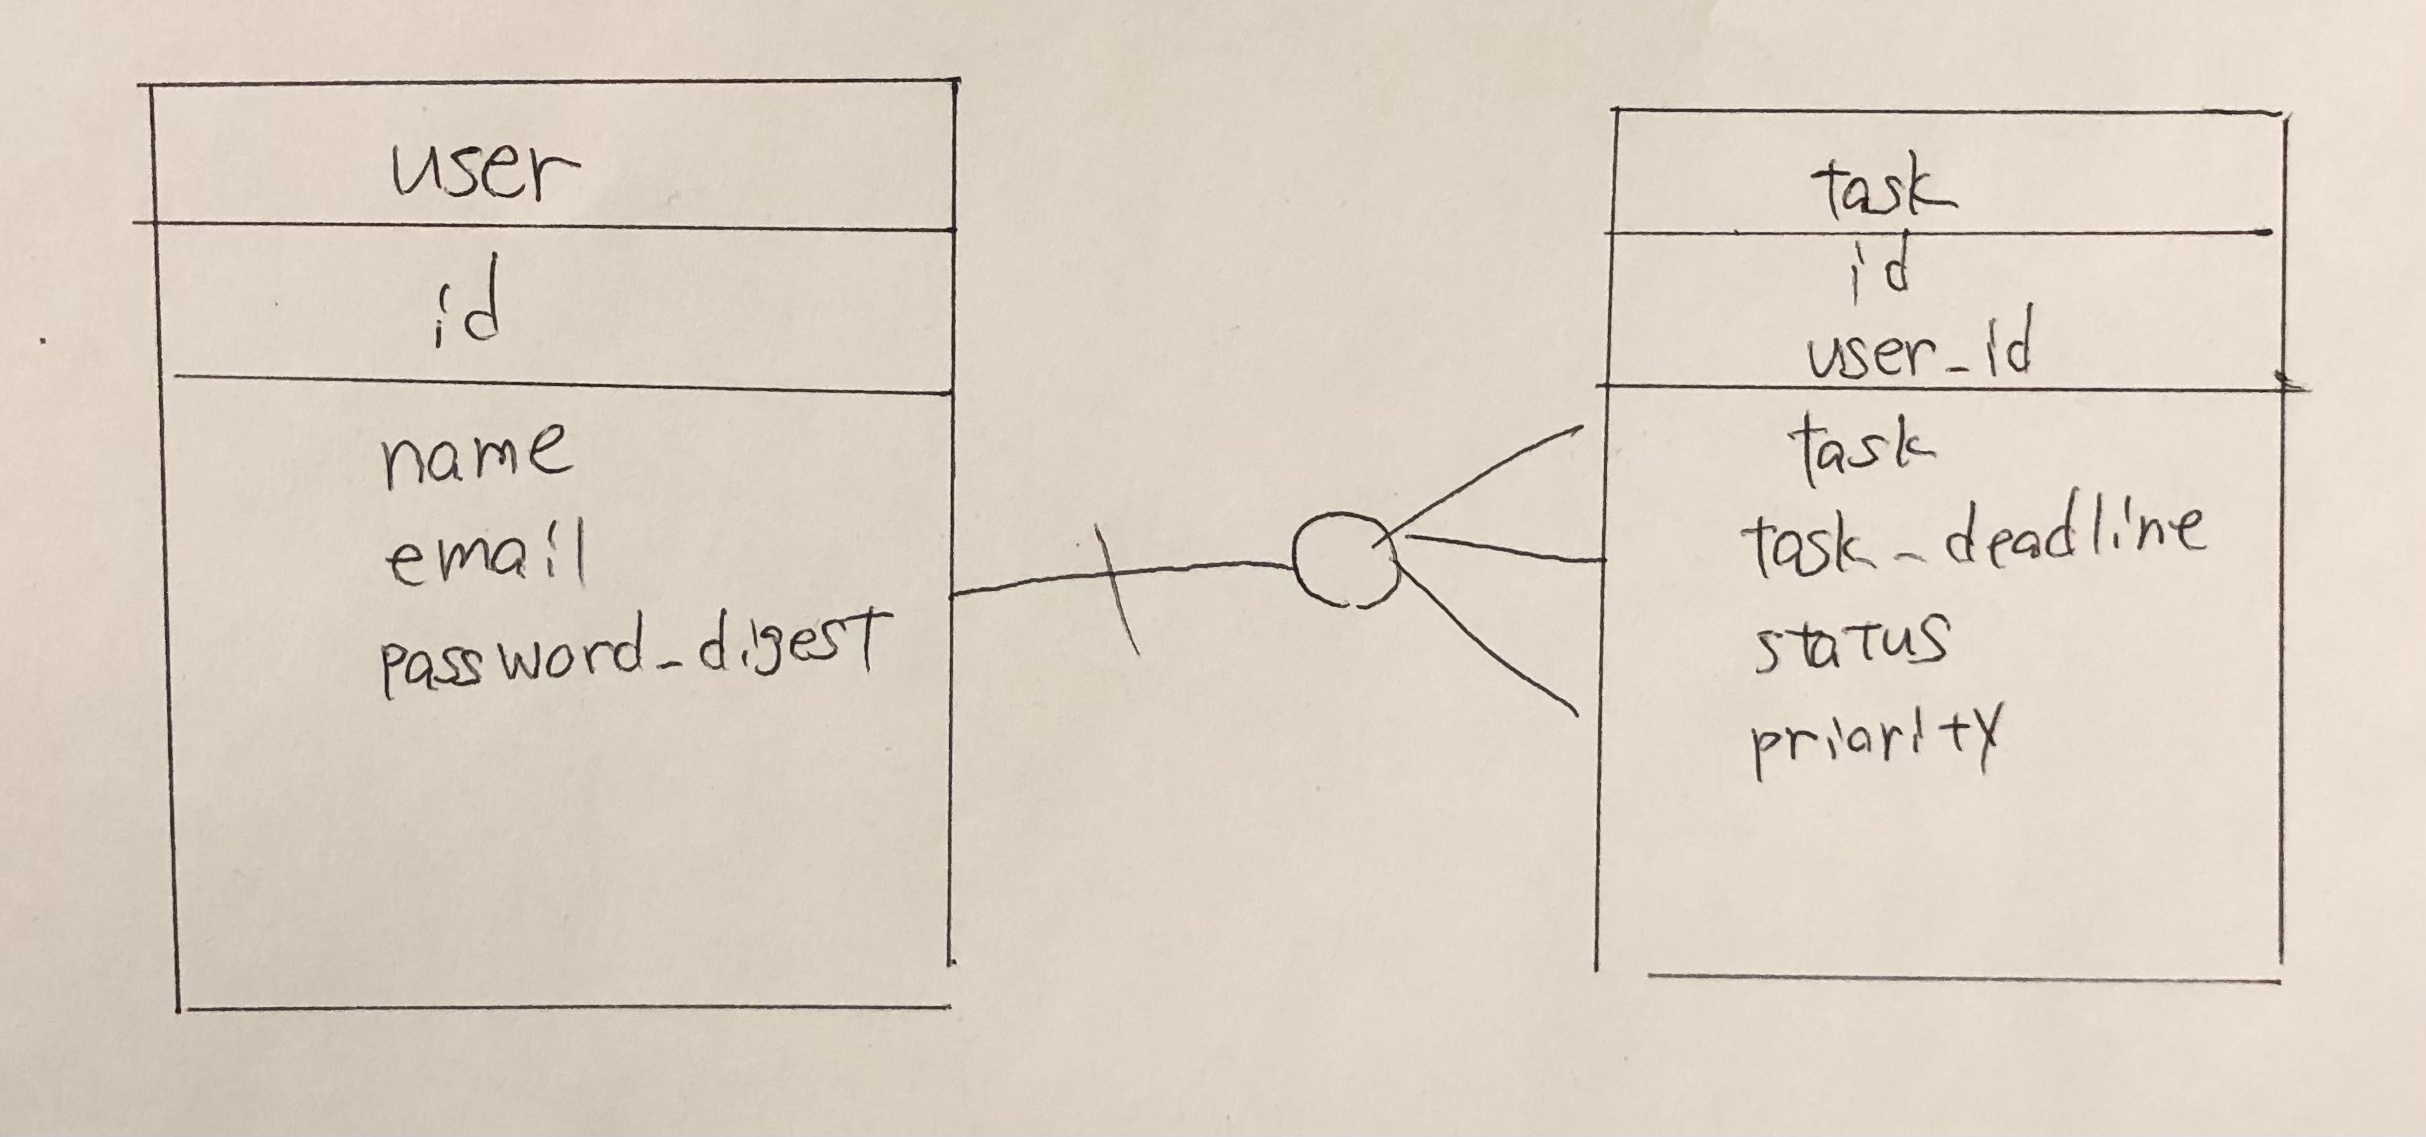 user
id
name
email
password_digest
task
id
user_id
task
task_deadline
status
priority